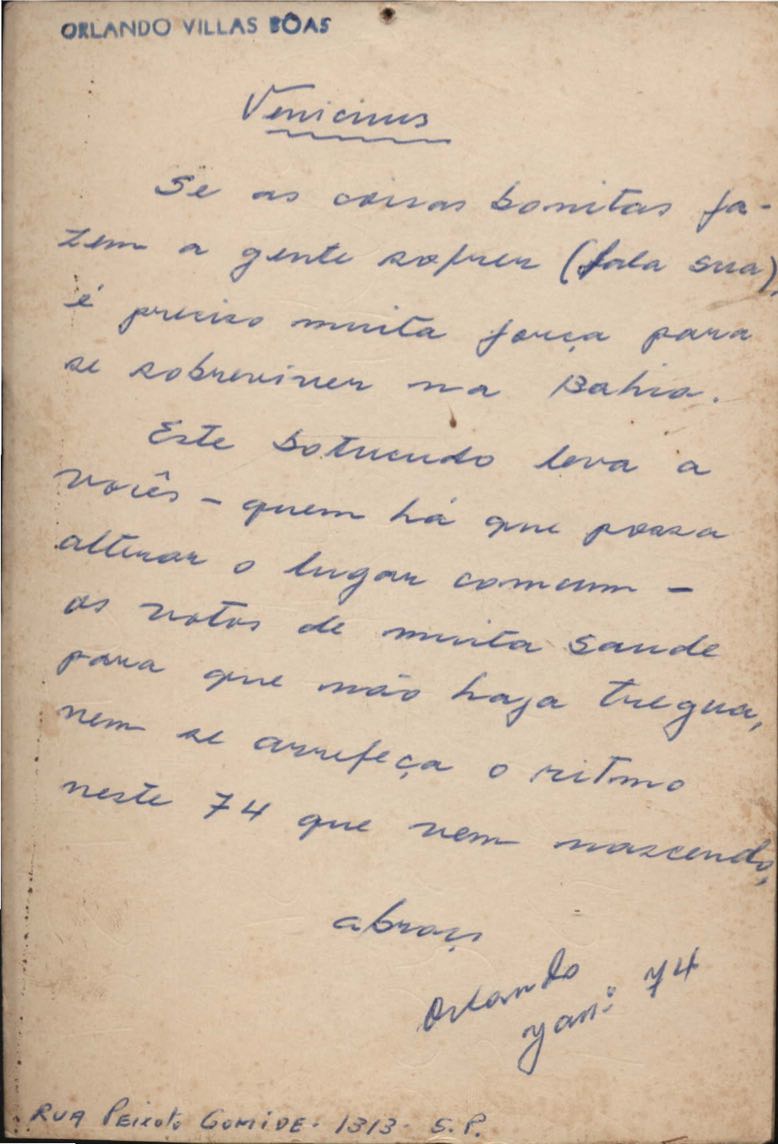 ORLANDO VILLAS BÔAS
Venicius
Se as coisas bonitas fa-
zem a gente sofrer (fala sua),
é preciso muita força para
se sobreviver na Bahia.
Este botucudo leva a
vocês - quem há que possa
alterar o lugar comum -
os votos de muita saude
para que não haja tregua,
nem se arrefeça o ritmo
neste 74 que vem nascendo,
abraço
Orlando
janº 74
RUA PEIXOTO GOMIDE - 1313 - S.P.